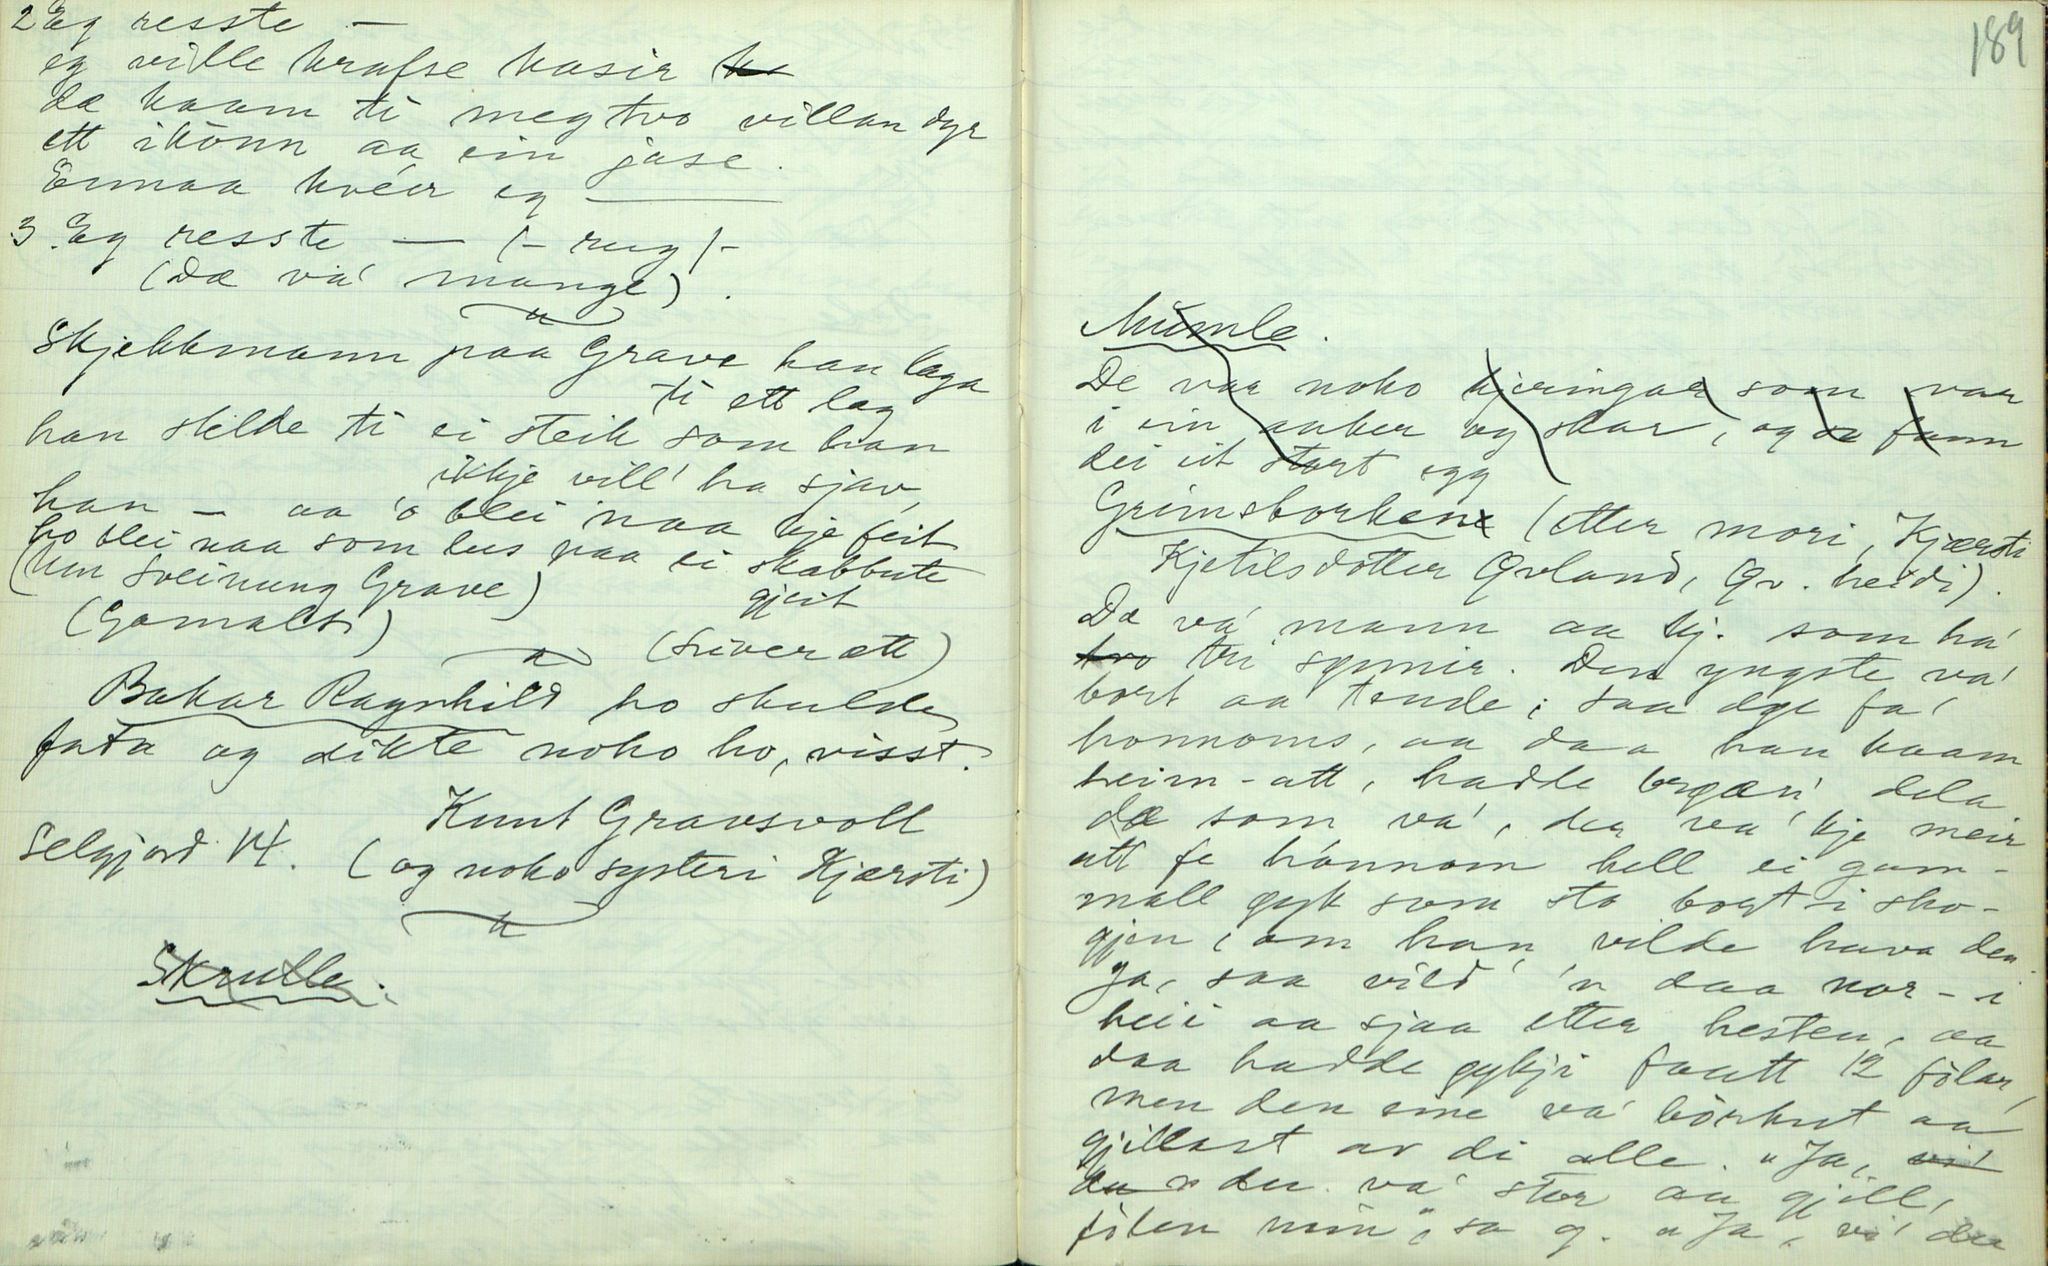 2 Eg resste —
eg ville krafse kasir ka
dæ kaam ti meg tvo villan dyr
ett ikönn aa ein jase.
Ennaa kvéer eg ———
3. Eg resste — /- rug /-
(Dæ va' mange).
Skjekkmann paa Grave han laga
ti ett lag
han stilde ti ei steik som han
ikkje vill' ha sjav,
han — aa 'o blei naa kje feit
ho blei naa som lus paa ei skabbute
gjeit
(Um Sveinung Grave)
(Gamalt) (Siverætt)
Bakar Ragnhild ho skulde
fata og dikte noko ho, visst.
Knut Gravsvoll
Selgjord. 14. (og noko systeri Kjærsti)
Skrulle.
189
Mumle.
De var noko kjeringar som var
i ein aaker og skar, og da fann
dei eit stort egg
Grimsborken (etter mori, Kjærsti
Kjetilsdotter Qvland, Qv. heidi).
Dæ va' mann aa kj. som ha'
tvo tri synnir. Den yngste va'
bort aa tende; saa døe fa'
honnoms, aa daa han kaam
heim-att, hadde brøan' dela
dæ som va', der va' kje meir
att fe hónnom hell ei gam-
mall gyk som sto bort-i sko-
gjen, om han vilde hava den.
Ja, saa vild' 'n daa nor-i
heii aa sjaa etter hesten, aa
daa hadde gykji faatt 12 fölar,
men den eine va' börkut aa
gjillast av di alle. "Ja, vi'
du du va' stor aa gjill,
fölen min", sa g. "Ja, vi' du